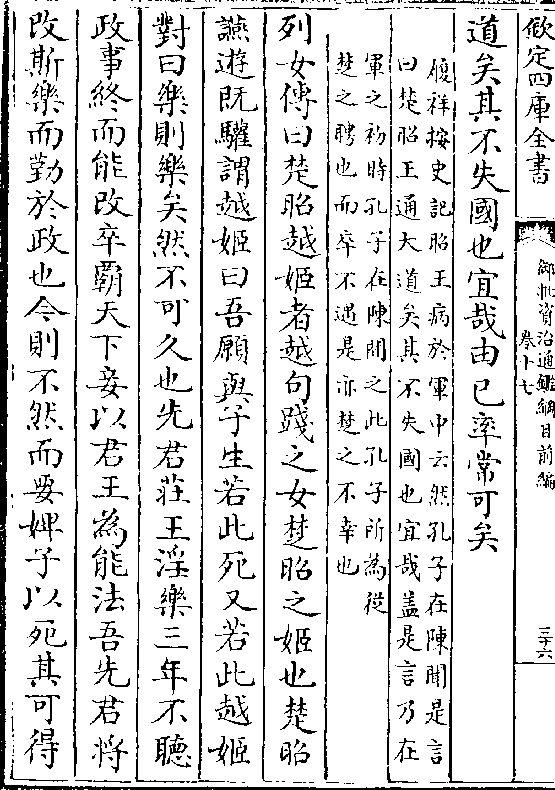 欽定四庫全書
御批資治通鑑綱目前編
卷十七
三十六
道矣其不失國也宜哉由已率常可矣
履祥按史記昭王病於軍中云然孔子在陳聞是言
曰楚昭王通大道矣其不失國也宜哉盖是言乃在
軍之初時孔子在陳聞之此孔子所為從
楚之聘也而卒不遇是亦楚之不幸也
列女傳曰楚昭越姬者越句踐之女楚昭之姬也楚昭
讌遊既驩謂越姬曰吾願與子生若此死又若此越姬
對曰樂則樂矣然不可久也先君莊王淫樂三年不聽
政事終而能改卒霸天下妾以君王為能法吾先君將
改斯樂而勤於政也今則不然而要婢子以死其可得